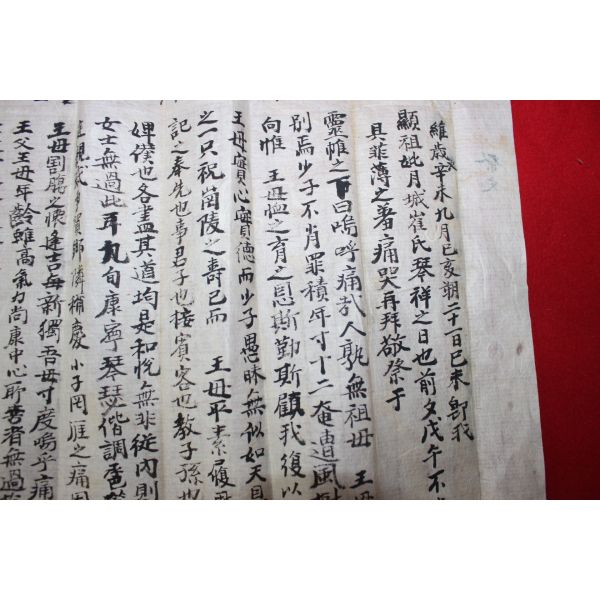 維歲次辛未九月己亥朔二十一日己未卽我
顯祖妣月城崔氏琴祥之日也前夕戊午不
具菲薄之羞痛哭再拜敬祭于
靈帷之下曰嗚呼痛哉人孰無祖母 王
別焉少子不肖罪積年寸十二奄遭風
向惟 王母之育之恩斯勤斯顧我復以
王母實心實德而少子愚昧無似如天
之一只祝崗陵之壽已而 王母平素履
記之奉先也事君子也接賓客也教子孫也
婢僕也各盡其道均是和悅無非從內則
女士無過此耳九旬康寧琴瑟偕調
親戚多賀鄉隣補慶 小子罔涯之痛
王母割膓之懷逢吉每新獨吾母寸度嗚乎痛
王父王母年齡雖高氣力尚康中心所苦者無過